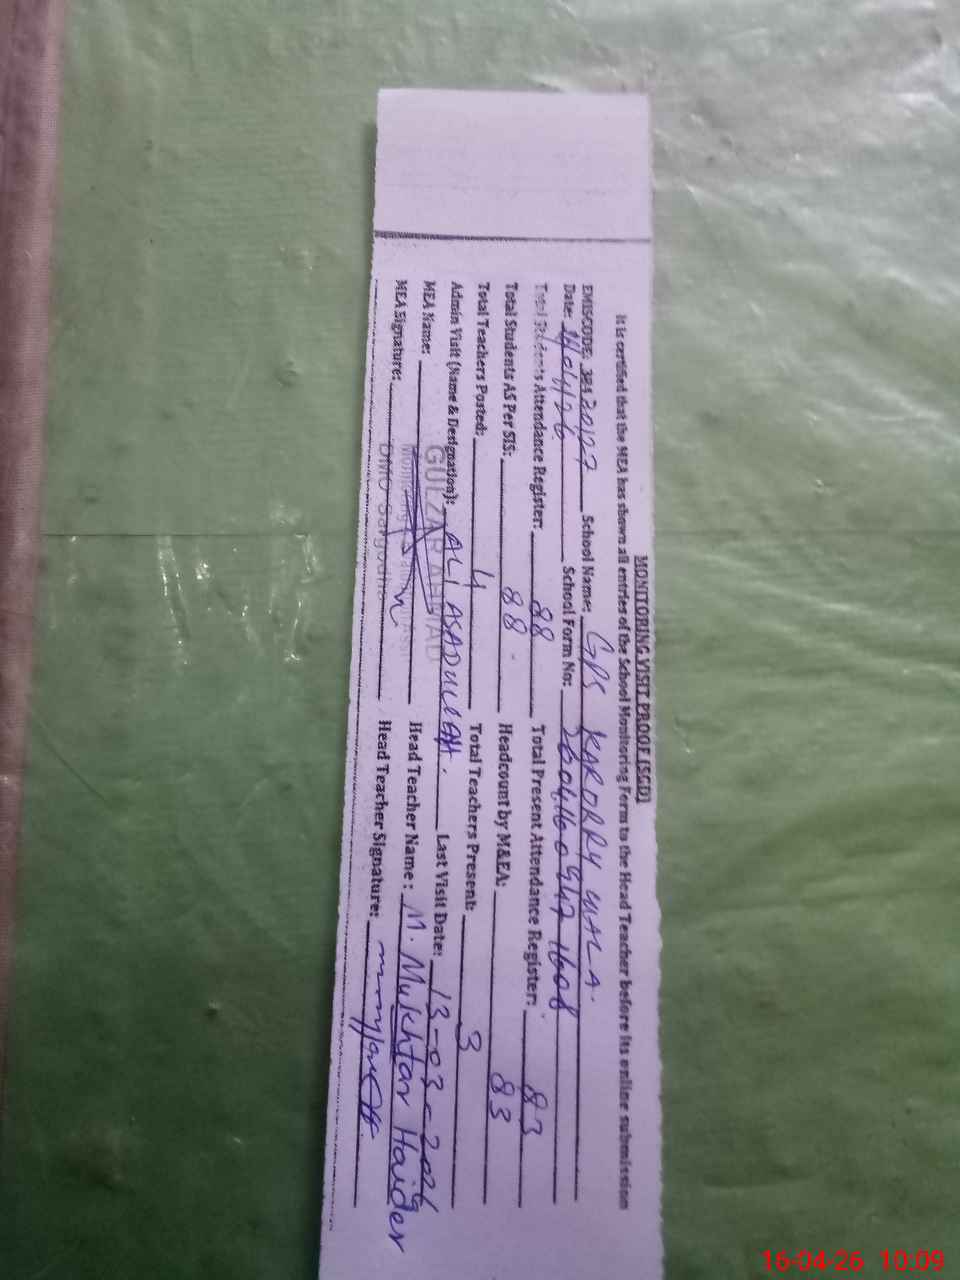 MONITORING VISIT PROOF (SGD)
It is certified that the MEA has shown all entries of the School Monitoring Form to the Head Teacher before its online submission
EMISCODE: 38420127 School Name: GPS KARORRY WALA.
Date: 16/04/26 School Form No: 2604160947 1608
Total Students Attendance Register: 88 Total Present Attendance Register: 83
Total Students AS Per SIS: 88 Headcount by M&EA: 83
Total Teachers Posted: 4 Total Teachers Present: 3
Admin Visit (Name & Designation): ALI ASADULLAH. Last Visit Date: 13-03-2026
MEA Name: GULZAR AHMAD Head Teacher Name: M. Mukhtar Haider
MEA Signature: DMO Sargodha Head Teacher Signature:
16-04-26 10:09